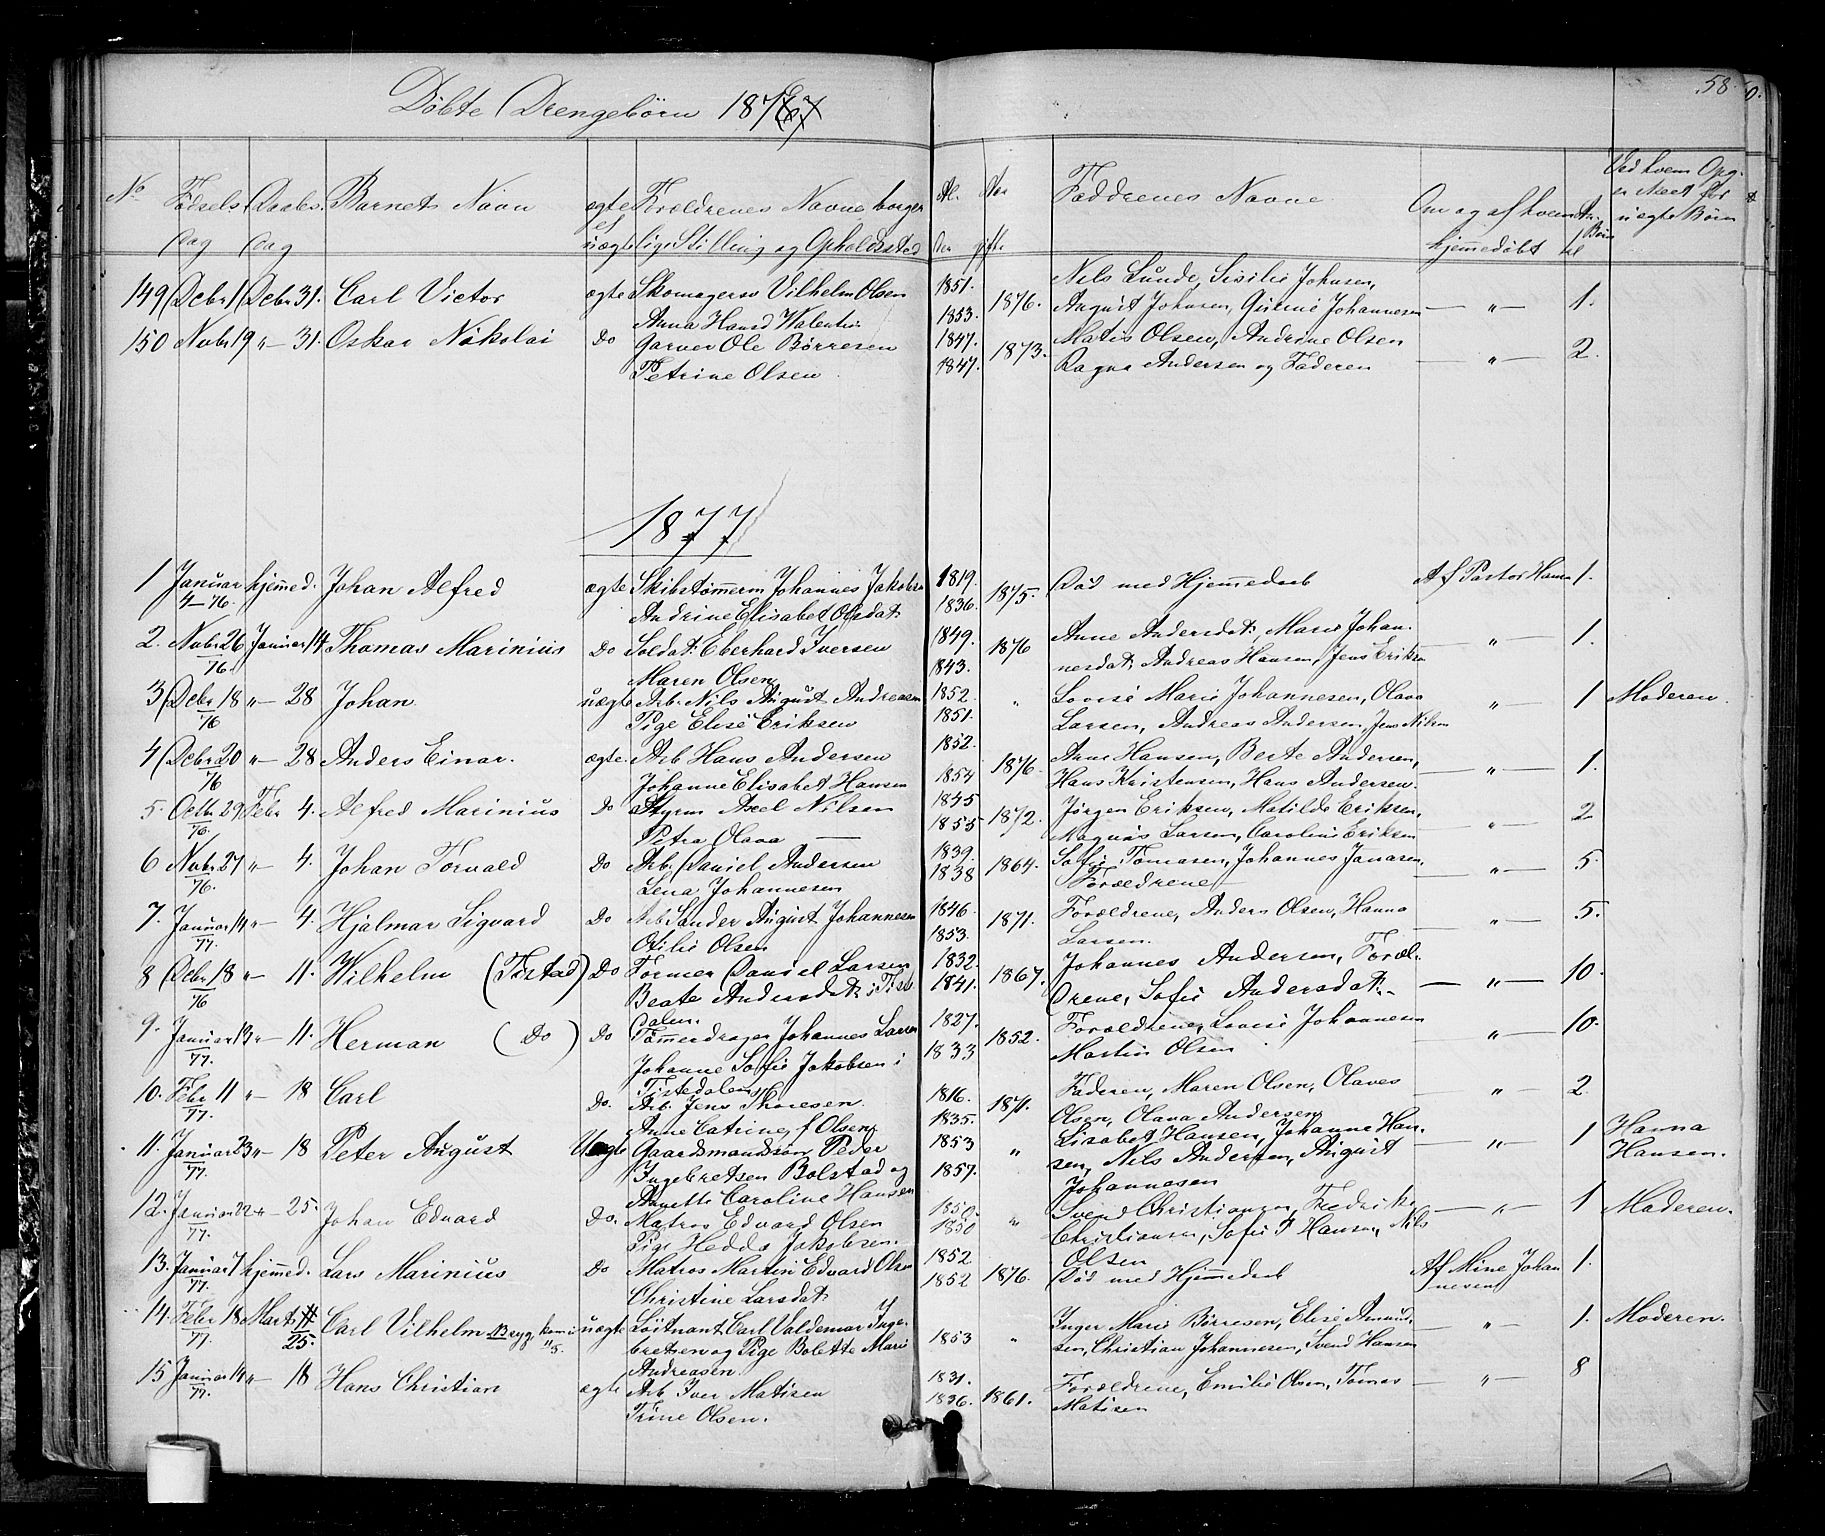 58.
Døbte Drengebørn 1876
No Fødsels dag Daabs dag Barnets Navn ægte el uægte Forældrenes Navne borgerlige Stilling og Opholdssted Al. der Naar gifte Faddrenes Navne Om og af hvem hjemmedøbt An. Børn Ved hvem Opg. er skeet for uægte Børn
149 Debr 1 Debr 31. Carl Victor ægte Skomagersv Vilhelm Olsen 1851. 1876. Nils Lunde, Sisilie Johnsen, — " — 1.
Anna Hansd Walentin 1853. August Johnsen, Gurine Johannesen
150 Nvbr 19 " — 31. Oskar Nikolai Do Garver Ole Børresen 1847. 1873. Matis Olsen, Andrine Olsen — " — 2.
Petrine Olsen 1847. Ragna Andersen og Faderen
1877
1 Januar 4 — 76. hjemed. Johan Alfred ægte Skibstømerm Johannes Jakobsen 1819. 1875. Død med Hjemmedaab Af Pastor Hansen 1.
Andrine Elisabet Olsdat. 1836.
2. Nvbr 26 76. Januar 14 Thomas Marinius Do Soldat Eberhard Iversen 1849. 1876 Anne Andersdat, Marie Johan- — " — 1.
Maren Olsen 1843. nesdat, Andreas Hansen, Jens Eriksen
3 Debr 18 76 " — 28 Johan uægte Arb. Nils August Andreasen 1852. " Lovise Marie Johannesen, Olava — " — 1 Moderen.
Pige Elise Eriksen 1851. Larsen, Andreas Andersen, Jens Nilsen
4 Debr 20 76 " — 28 Anders Einar. ægte. Arb Hans Andersen 1852. 1876. Anne Hansen, Berte Andersen, — " — 1.
Johanne Elisabet Hansen 1854 Hans Kristensen, Hans Andersen.
5. Octb. 29 76. Febr 4. Alfred Marinius Do Styrm Axel Nilsen 1845 1872. Jørgen Eriksen, Matilde Eriksen, — " — 2
Petra Olava — 1855 Magnus Larsen, Caroline Eriksen
6 Nvbr 27 76. " — 4. Johan Torvald Do Arb. Daniel Andersen 1839. 1864. Sofie Tomasen, Johannes Jonasen, — " — 5.
Lena Johannesen 1838 Forældrene
7. Januar 14 77. " — 4. Hjalmar Sigvard Do Arb. Sander August Johannesen 1846. 1871. Forældrene, Anders Olsen, Hanna — " — 5.
Otilie Olsen 1853. Larsen.
8 Debr 18 76 " — 11. Wilhelm (Tistad) Do Former Daniel Larsen 1832. 1867. Johannes Andersen, Foræl- — " — 10.
Beate Andersdat. i Tist- 1841. drene, Sofie Andersdat.
dalen.
9. Januar 13 77. " — 11. Herman (Do) Do Tømerdrager Johannes Larsen 1827. 1852. Forældrene, Lovise Johannesen — " — 10.
Johanne Sofie Jakobsen i 1833 Martin Olsen
Tistedalen
10. Febr 11 77. " — 18 Carl Do. Arb. Jens Thoresen. 1816. 1871. Faderen, Maren Olsen, Olaves — " — 2.
Anne Catrine f Olsen 1835. Olsen, Olava Andersen
11. Januar 23 77. " — 18 Peter August Uægte Gaardsmandssøn Peder 1853 " Lisabet Hansen, Johanne Han- — " — 1 Hanna Hansen.
Ingebretsen Bolstad og 1857. sen, Nils Andersen, August
Anette Caroline Hansen Johannesen
12. Januar 22 77. " — 25. Johan Edvard Do. Matros Edvard Olsen 1850. " Svend Christiansen, Fredrike — " — 1 Moderen.
Pige Hedda Jakobsen. 1850 Christiansen, Sofie P Hansen, Nils
Olsen
13. Januar 7 77. hjemed. Lars Marinius Do Matros Martin Edvard Olsen 1852 1876. Død med Hjemmedaab Af Mine Johannesen 1.
Christine Larsdat. 1852
14. Febr 18 77. Marts 25. Carl Vilhelm uægte Løitnant Carl Valdemar Inge- 1853 " Inger Marie Børresen, Elise Amund- — " — 1. Moderen.
bretsen og Pige Bolette Marie sen, Christian Johannesen, Svend Hansen
Andreasen.
15 Januar 14 77. " — 18 Hans Christian ægte Arb. Iver Matisen 1831. 1861. Forældrene, Emilie Olsen, Tomas — " — 8
Trine Olsen. 1836. Matisen